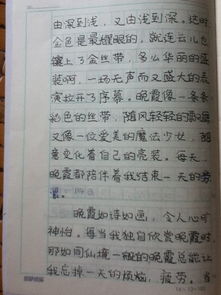 由深到浅，又由浅到深。这时
金色是最耀眼的，就连云儿也
镶上了金丝带，多么华丽的盛
装啊，一场无声而又盛大的表
演拉开了序幕。晚霞像一条条
彩色的丝带，随风轻轻的飘
又像一位爱美的魔法少女，随
意变化着自己的亮装。每天，
晚霞都陪伴着我结束一天的劳
晚霞如诗如画，令人心旷
神怡。每当我独自欣赏晚霞时，
那如同仙境一般的晚霞总能让
我忘掉一天的烦恼，疲劳。当